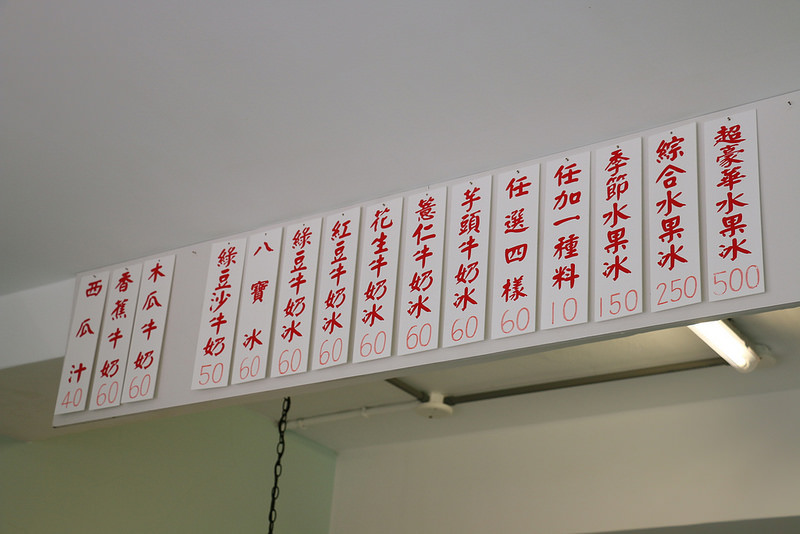 超豪華水果冰 500
綜合水果冰 250
季節水果冰 150
任加一種料 10
任選四樣 60
芋頭牛奶冰 60
薏仁牛奶冰 60
花生牛奶冰 60
紅豆牛奶冰 60
綠豆牛奶冰 60
八寶冰 60
綠豆沙牛奶 50
木瓜牛奶 60
香蕉牛奶 60
西瓜汁 40